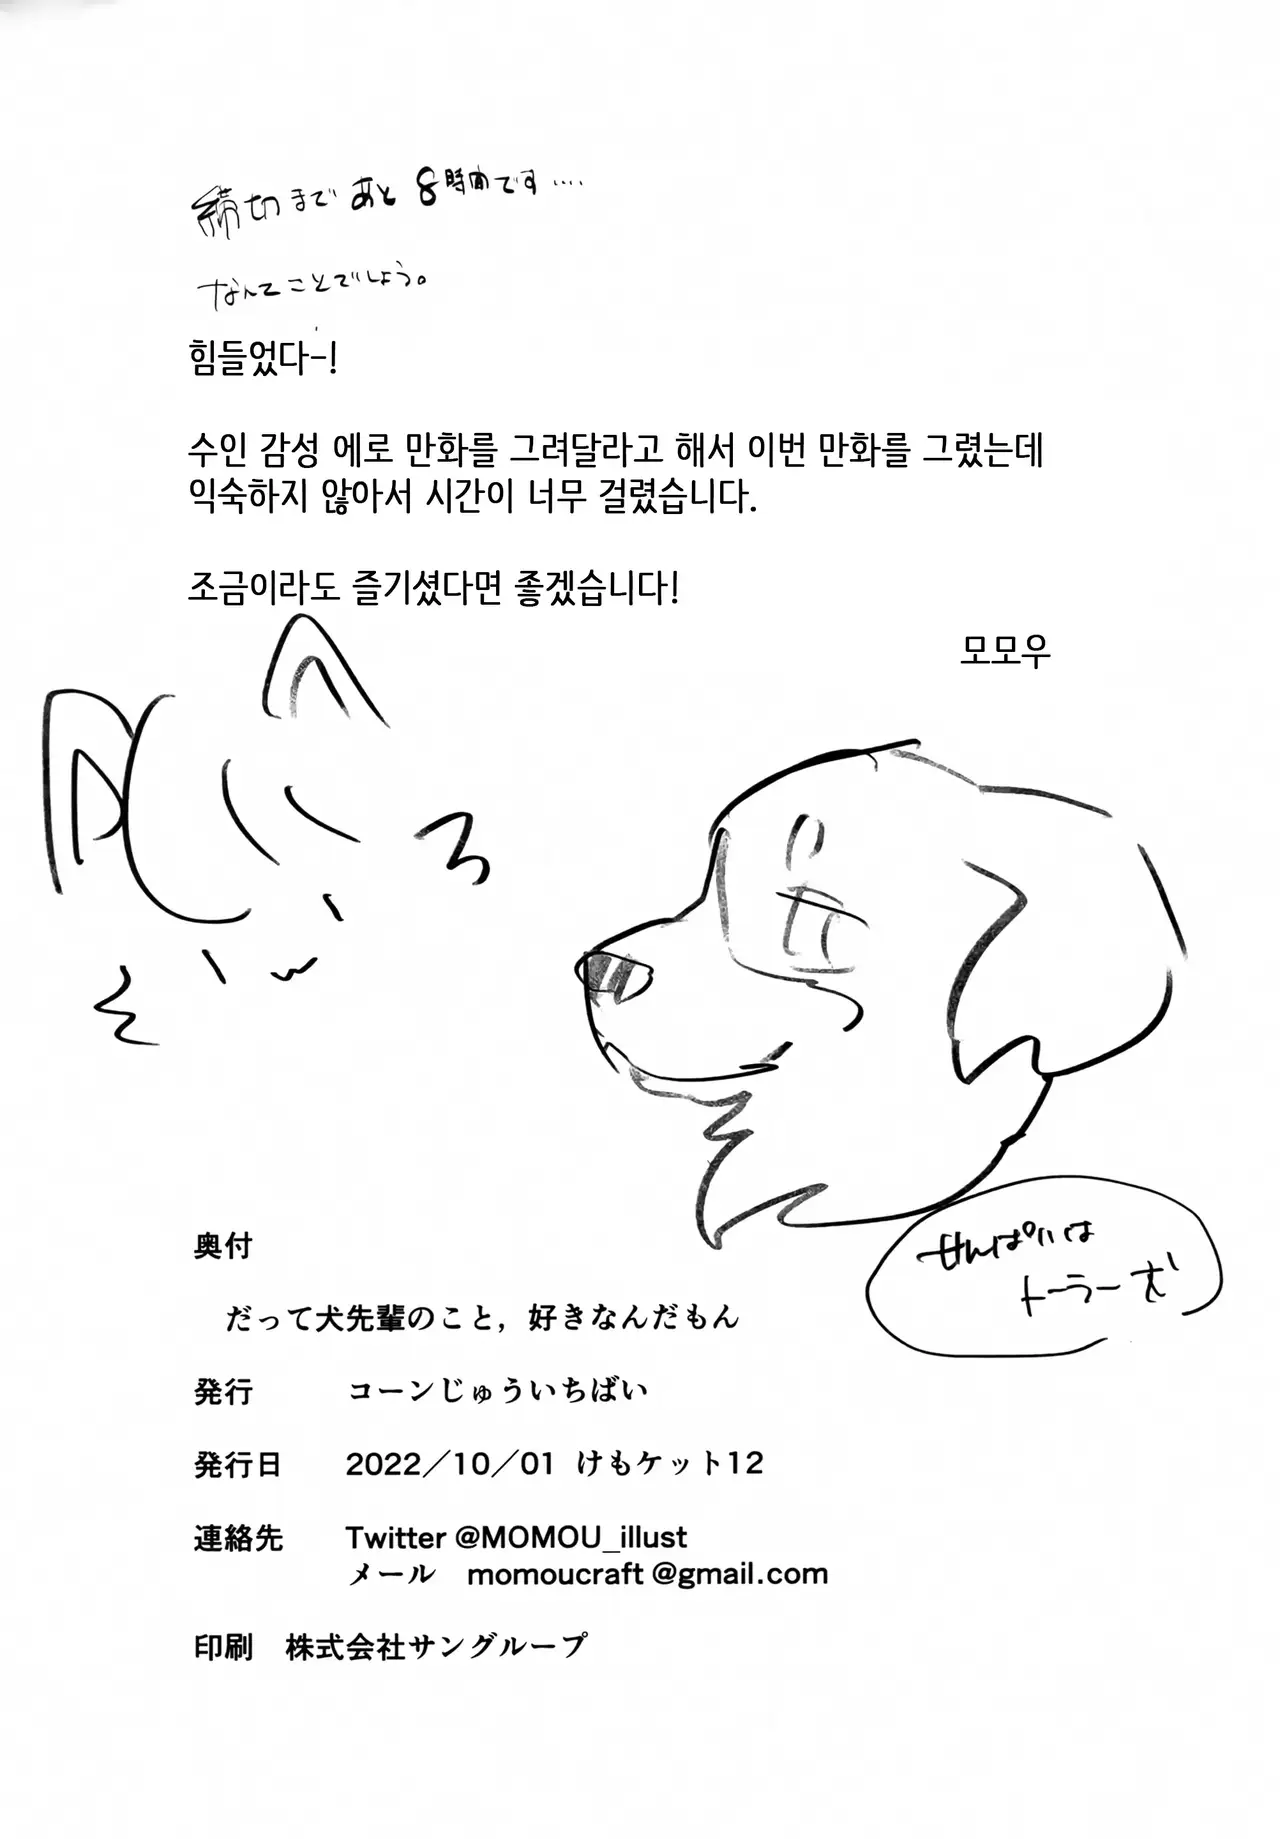 締切まであと8時間です....
なんてことでしょう。
힘들었다-!
수인 감성 에로 만화를 그려달라고 해서 이번 만화를 그렸는데
익숙하지 않아서 시간이 너무 걸렸습니다.
조금이라도 즐기셨다면 좋겠습니다!
모모우
せんぱいは
トーラー犬
奥付
だって犬先輩のこと，好きなんだもん
発行 コーンじゅういちばい
発行日 2022／10／01 けもケット12
連絡先 Twitter @MOMOU_illust
メール momoucraft@gmail.com
印刷 株式会社サングループ